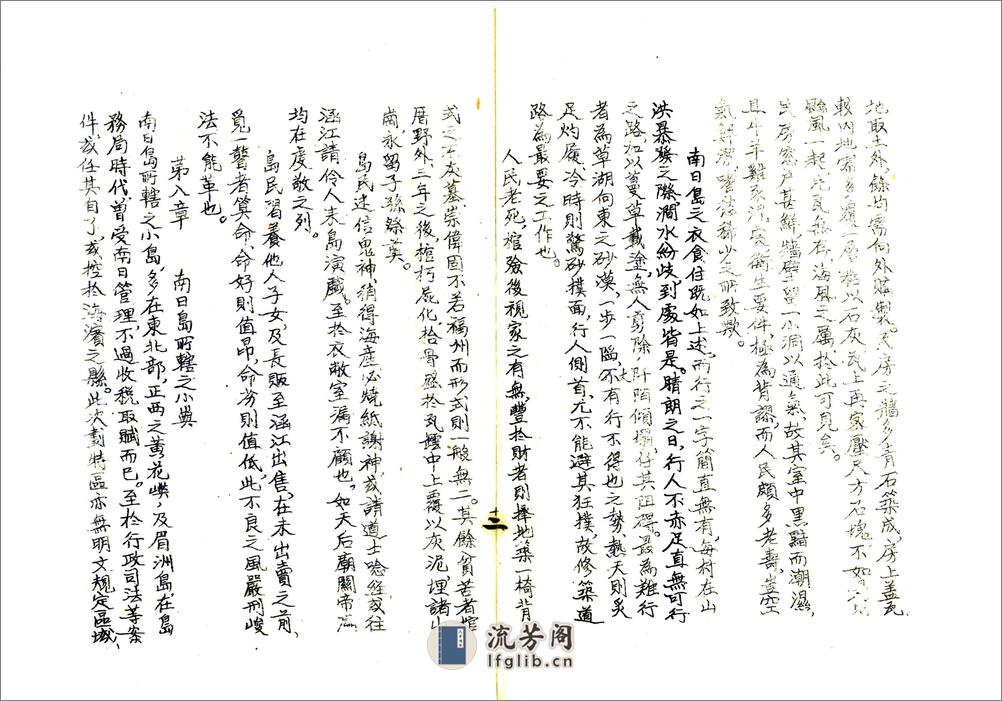 地取土外餘均需向外購製。民房之牆多青石築成,房上蓋瓦
較內地
颱風一起,
民房窓戶甚鮮,牆壁留一小洞以通氣,故其室中黑黯而潮濕,
衛生要件極為背謬,而人民頗多老壽,豈空
氣鮮潔,嗜慾稀少之所致歟。
南日島之衣食住既如上述,而行之一字簡直無有,每村在山
洪暴發之際,澗水紛歧,到處皆是。晴朗之日,行人不赤足直無可行
之路,加以蔓草載塗,無人剪除,阡陌傾塌,任其阻碍。最為難行
者為草湖向東之砂漠,一步一臨,大有行不得也之勢,熱天則炙
足灼履,冷時則驚砂撲面,行人側首,尤不能避其狂撲,故修築道
路為最要之工作也。
人民老死,棺殮後視家之有無,豐於財者則擇地築一椅背
式之石灰墓,崇偉固不若福州,而形式則一般無二。其餘貧苦者棺
厝野外,三年之後,棺朽屍化,拾骨盛於瓦罈中,上覆以灰泥,埋諸山
崗,永留子孫祭奠。
島民迷信鬼神,稍得海產,必燒紙謝神,或請道士唸經,或往
涵江請伶人來島演戲。至於衣敝室漏不顧也。如天后廟關帝
均在虔敬之列。
島民習養他人子女,及長販至涵江出售,在未出賣之前,
覓一瞽者算命,命好則值昂,命劣則值低,此不良之風嚴刑峻
法不能革也。
第八章 南日島所轄之小嶼
南日島所轄之小島,多在東北部,正西之黃花嶼,及眉洲島,在島
務局時代,曾受南日管理,不過收稅取賦而已。至於行政司法等案
件,或任其自了,或控於海濱之縣。此次劃特區亦無明文規定區域,
十二
流芳阁
lfglib.cn